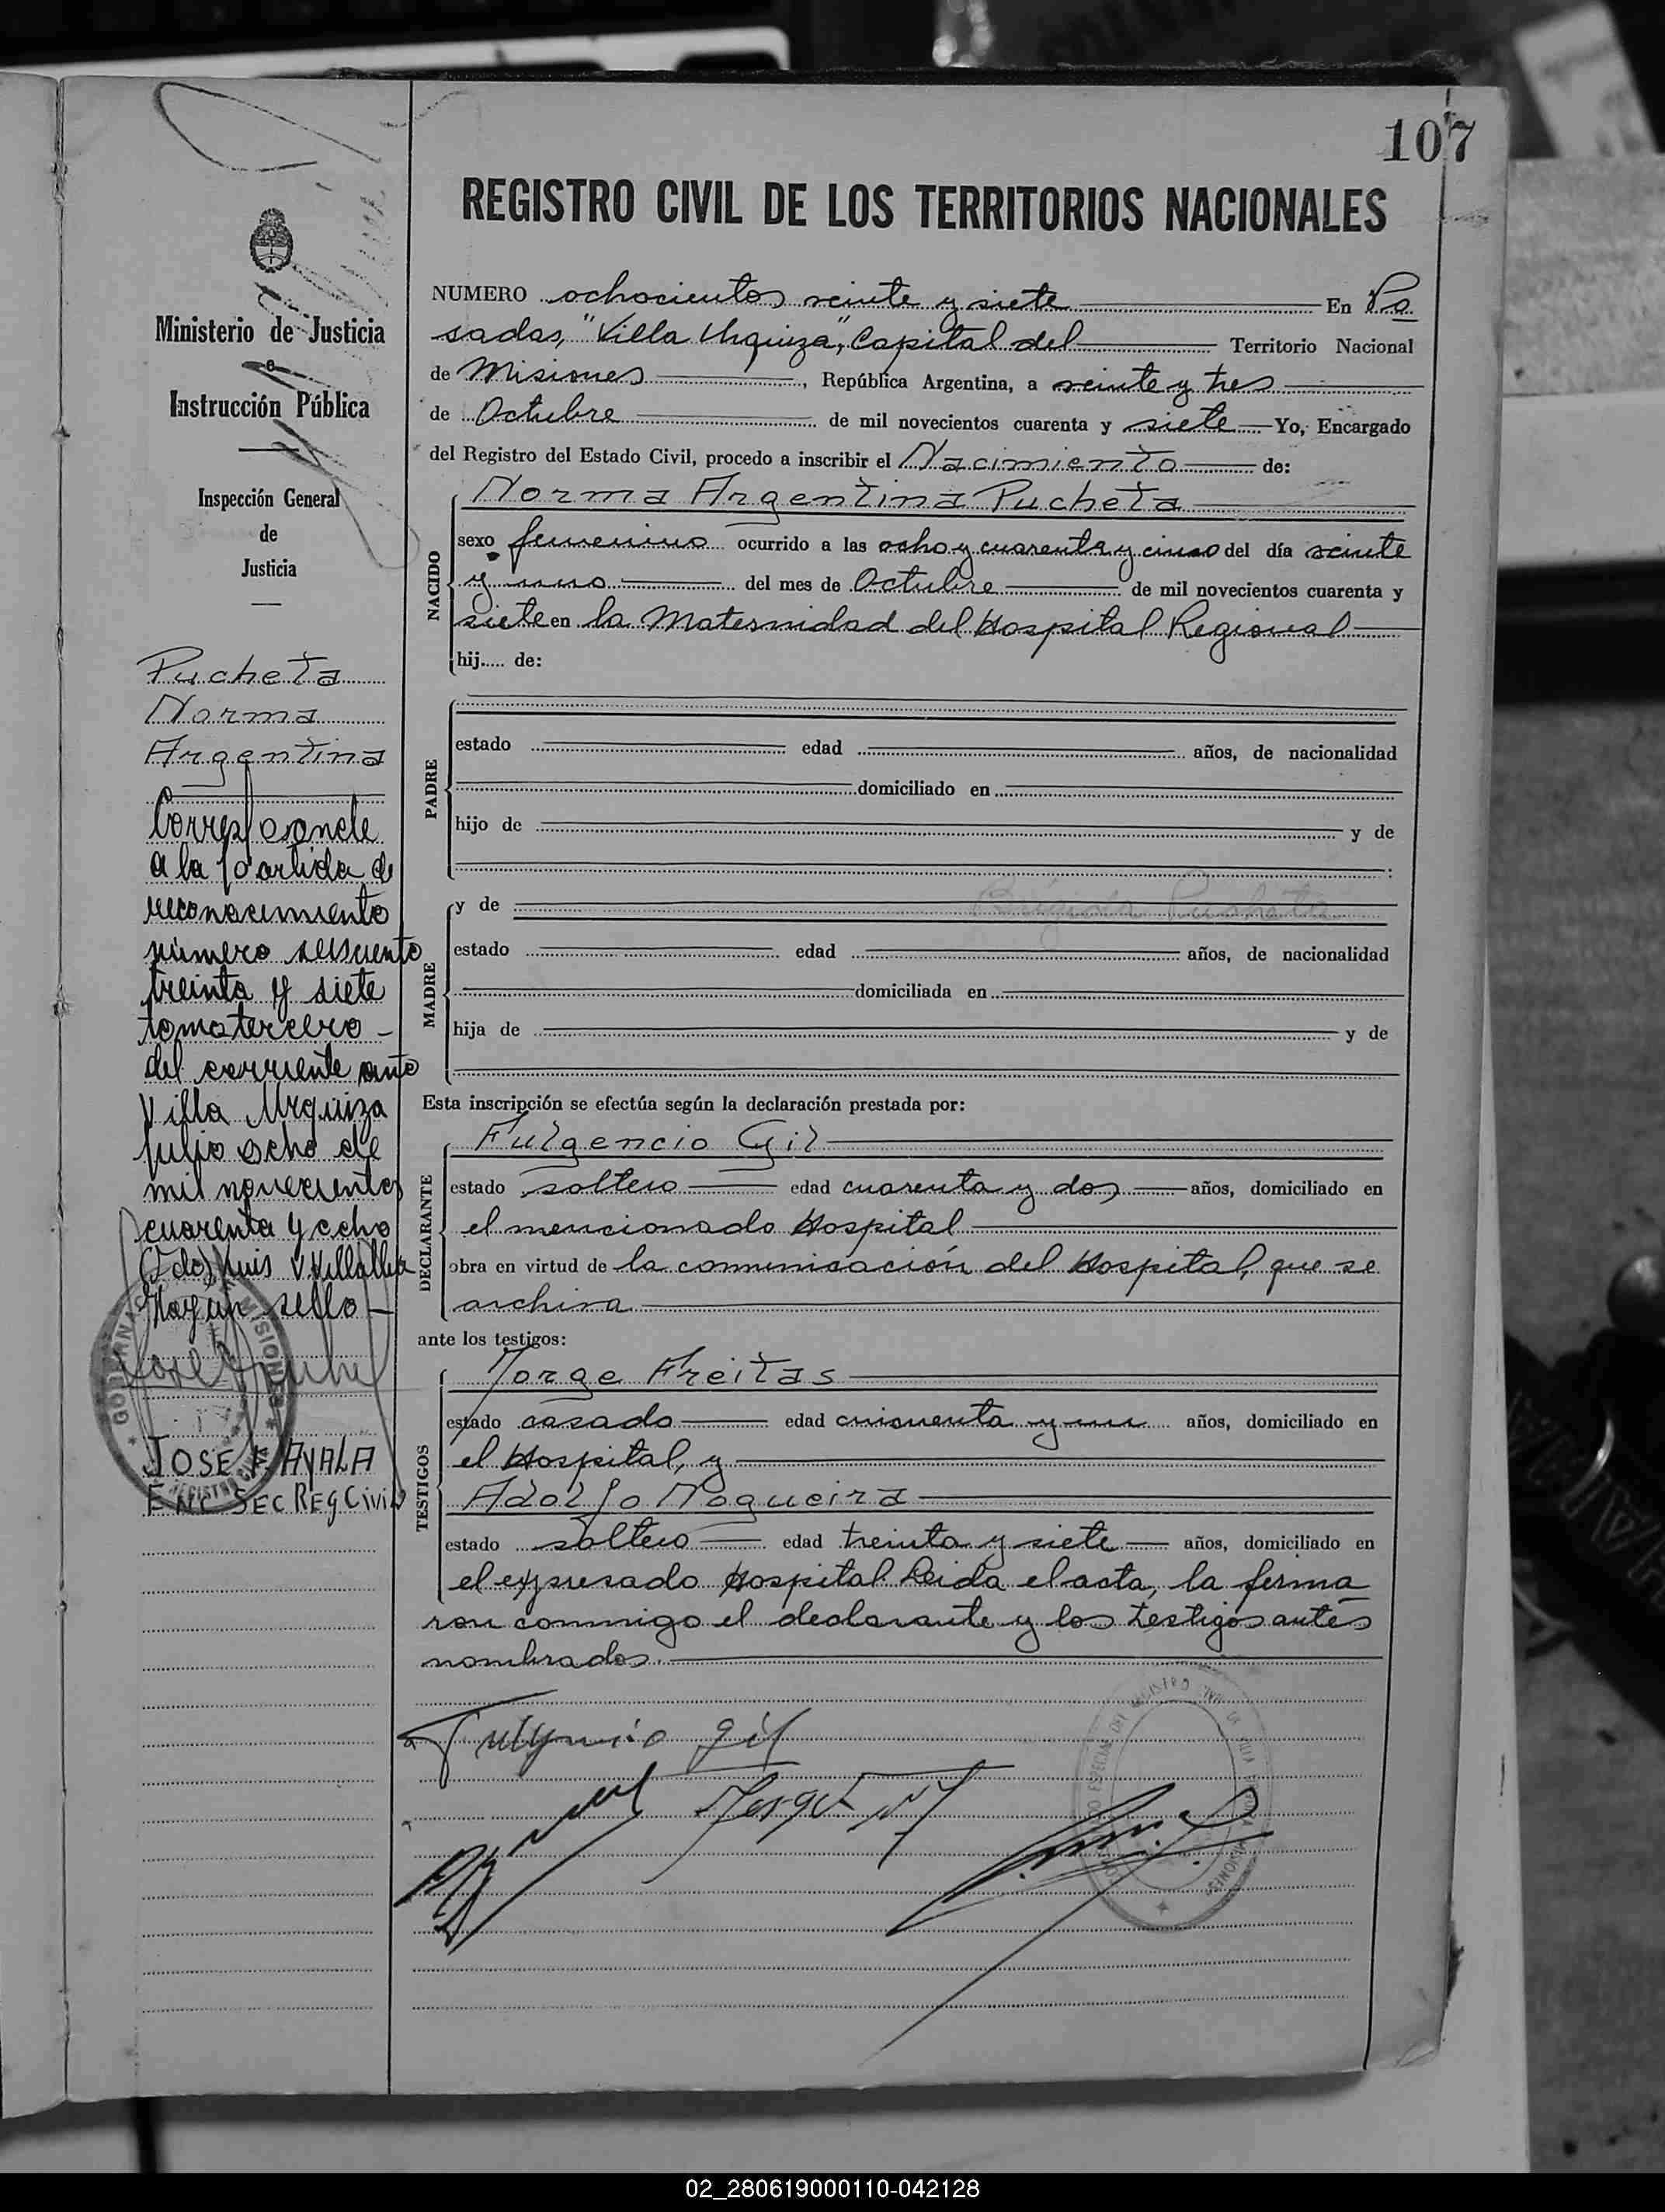 107
REGISTRO CIVIL DE LOS TERRITORIOS NACIONALES
Ministerio de Justicia
e
Instrucción Pública
Inspección General
de
Justicia
Pucheta
Norma
Argentina
Corresponde
a la partida de
reconocimiento
número seisciento
treinta y siete
tomo tercero -
del corriente año
Villa Urquiza
julio ocho de
mil novecientos
cuarenta y ocho
(Fdo) Luis V. Villalba
Hay un sello -
JOSE F. AYALA
ENC SEC REG CIVIL
NUMERO ochocientos veinte y siete En Po
sadas, "Villa Urquiza", Capital del Territorio Nacional
de Misiones , República Argentina, a veinte y tres
de Octubre de mil novecientos cuarenta y siete Yo, Encargado
del Registro del Estado Civil, procedo a inscribir el Nacimiento de:
NACIDO
Norma Argentina Pucheta
sexo femenino ocurrido a las ocho y cuarenta y cinco del día veinte
y uno del mes de Octubre de mil novecientos cuarenta y
siete en la Maternidad del Hospital Regional
hij..... de:
PADRE
estado edad años, de nacionalidad
domiciliado en
hijo de y de
:
MADRE
y de Brígida Pucheta
estado edad años, de nacionalidad
domiciliada en
hija de y de
Esta inscripción se efectúa según la declaración prestada por:
DECLARANTE
Fulgencio Gil
estado soltero edad cuarenta y dos años, domiciliado en
el mencionado Hospital
obra en virtud de la comunicación del Hospital, que se
archiva
ante los testigos:
TESTIGOS
Jorge Freitas
estado casado edad cincuenta y un años, domiciliado en
el Hospital, y
Adolfo Nogueira
estado soltero edad treinta y siete años, domiciliado en
el expresado Hospital. Leida el acta, la firma
ron conmigo el declarante y los testigos antes
nombrados.
Fulgencio Gil
02_280619000110-042128